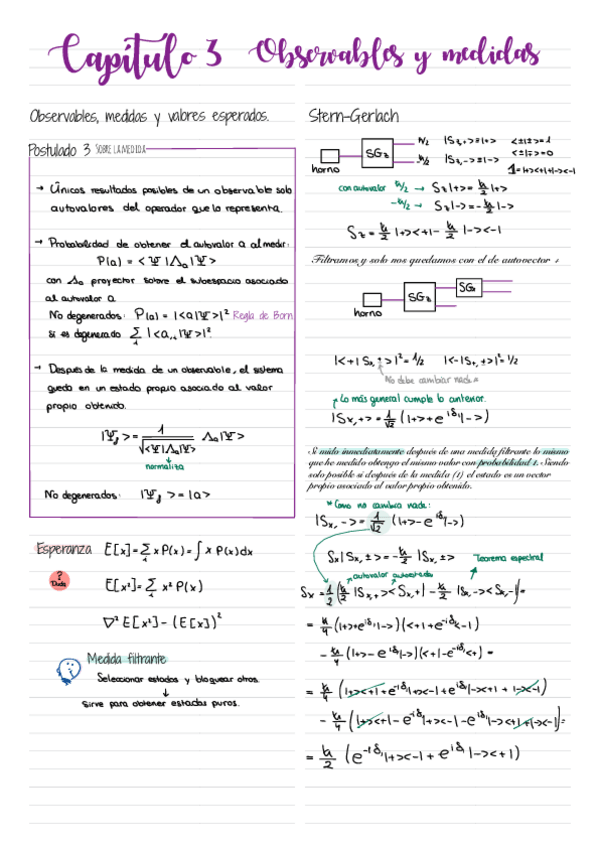 Capítulo 3 Observables y medidas
Observables, medidas y valores esperados.
Postulado 3 SOBRE LA MEDIDA
→ Únicos resultados posibles de un observable solo
autovalores del operador que lo representa.
→ Probabilidad de obtener el autovalor a al medir:
P(a) = <Ψ|Λₐ|Ψ>
con Λₐ proyector sobre el subespacio asociado
al autovalor a
No degenerados: P(a) = |<a|Ψ>|² Regla de Born
si es degenerado Σ |<aᵢ|Ψ>|²
→ Después de la medida de un observable, el sistema
queda en un estado propio asociado al valor
propio obtenido.
|Ψ> = 1/√<Ψ|Λₐ|Ψ> Λₐ|Ψ>
normaliza
No degenerados: |Ψ> = |a>
Esperanza E[x] = Σ x P(x) = ∫ x P(x) dx
? Duda
E[x²] = Σ x² P(x)
∇² E[x²] - (E[x])²
Medida filtrante
Seleccionar estados y bloquear otros.
↓
Sirve para obtener estados puros.
Stern-Gerlach
horno SG_z ħ/2 |S_z,+> ≡ |+> <±|±> = 1
-ħ/2 |S_z,-> ≡ |-> <±|∓> = 0
1 = |+><+| + |-><-|
con autovalor ħ/2 → S_z|+> = ħ/2 |+>
-ħ/2 → S_z|-> = -ħ/2 |->
S_z = ħ/2 |+><+| - ħ/2 |-><-|
Filtramos y solo nos quedamos con el de autovector +
horno SG_z SG_x
|<+|S_x,±>|² = 1/2 |<-|S_x,+>|² = 1/2
No debe cambiar nada
Lo más general cumple lo anterior.
|S_x,+> = 1/√2 (|+> + e^{iδ₁}|->)
Si mido inmediatamente después de una medida filtrante lo mismo
que he medido obtengo el mismo valor con probabilidad 1. Siendo
solo posible si después de la medida (1) el estado es un vector
propio asociado al valor propio obtenido.
* Como no cambia nada:
|S_x,-> = 1/√2 (|+> - e^{iδ₁}|->)
S_x|S_x,±> = -ħ/2 |S_x,±> Teorema espectral
autovalor autoestado
S_x = 1/2 (ħ/2 |S_x,+><S_x,+| - ħ/2 |S_x,-><S_x,-|) =
= ħ/4 (|+> + e^{iδ₁}|->)(<+| + e^{-iδ₁}<-|)
- ħ/4 (|+> - e^{iδ₁}|->)(<+| - e^{-iδ₁}<-|) =
= ħ/4 (|+><+| + e^{-iδ₁}|+><-| + e^{iδ₁}|-><+| + |-><-|)
- ħ/4 (|+><+| - e^{-iδ₁}|+><-| - e^{iδ₁}|-><+| + |-><-|) =
= ħ/2 (e^{-iδ₁}|+><-| + e^{iδ₁}|-><+|)